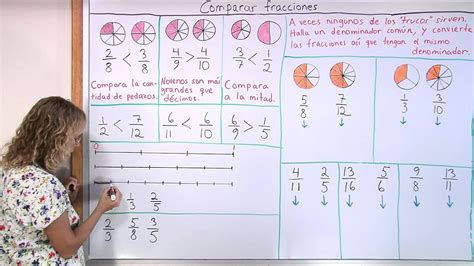 Comparar fracciones
2/8 < 3/8
4/9 > 4/10
3/7 < 1/2
Compara la can-
tidad de pedazos.
Novenos son más
grandes que
décimos.
Compara
a la mitad.
1/2 < 7/12
6/11 < 6/10
6/9 > 1/5
0 1
1/3 2/5
2/3 5/8 3/5
A veces ningonos de los "trucos" sirven.
Halla un denominador común, y convierte
las fracciones así que tengan el mismo
denominador.
5/8 7/12 1/3 3/10
4/11 2/5 13/16 5/6 9/8 13/11